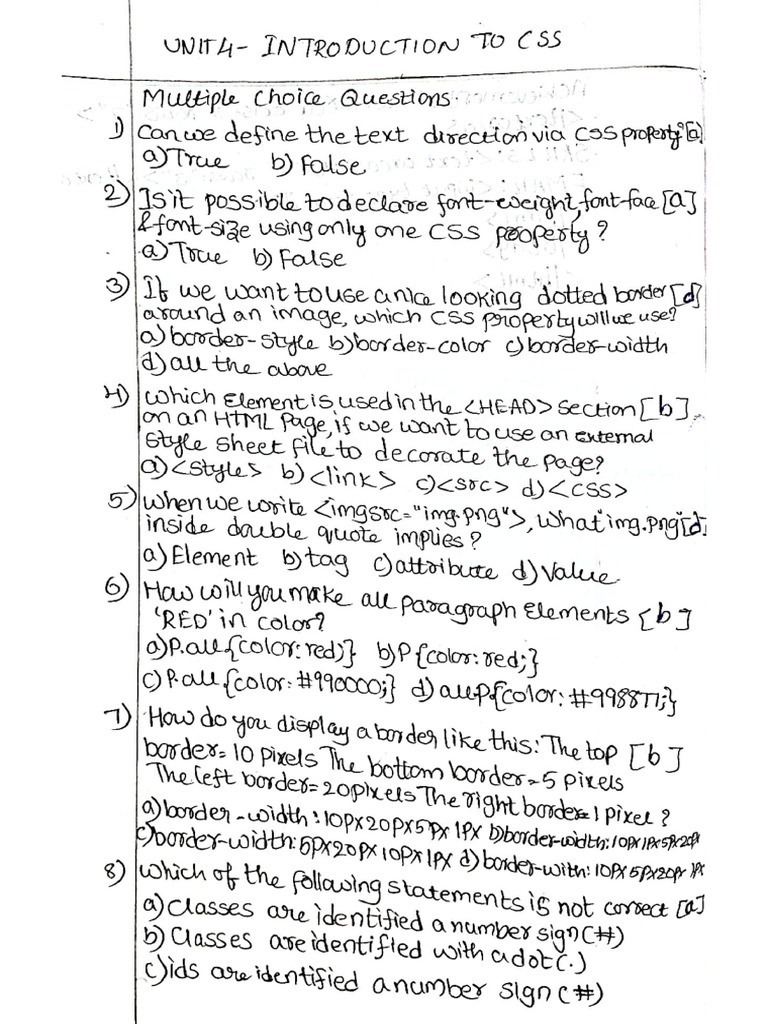 UNIT4- INTRODUCTION TO CSS
Multiple Choice Questions.
1) Can we define the text direction via CSS property? [a]
a) True b) False
2) Is it possible to declare font-weight, font-face [a]
& font-size using only one CSS property?
a) True b) False
3) If we want to use a nice looking dotted border [d]
around an image, which CSS property will we use?
a) border-style b) border-color c) border-width
d) all the above
4) Which Element is used in the <HEAD> section [b]
on an HTML Page, if we want to use an external
style sheet file to decorate the page?
a) <style> b) <link> c) <src> d) <CSS>
5) When we write <img src="img.png">, what "img.png" [d]
inside double quote implies?
a) Element b) tag c) attribute d) Value
6) How will you make all paragraph Elements [b]
'RED' in color?
a) P.all {color: red)} b) P {color: red;}
c) P.all {color: #990000;} d) all P.{color: #998877;}
7) How do you display a border like this: The top [b]
border = 10 pixels The bottom border = 5 pixels
The left border = 20 pixels The right border = 1 pixel?
a) border-width: 10px 20px 5px 1px b) border-width: 10px 1px 5px 20px
c) border-width: 5px 20px 10px 1px d) border-with: 10px 5px 20px 1px
8) Which of the following statements is not correct [a]
a) Classes are identified a number sign (#)
b) Classes are identified with a dot (.)
c) ids are identified a number sign (#)